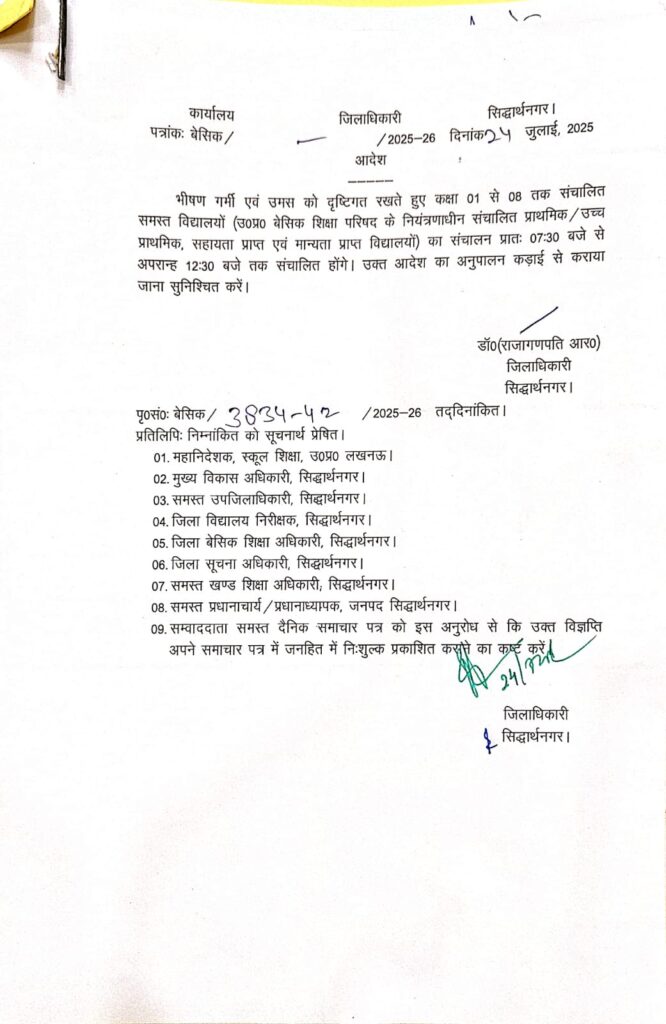 कार्यालय जिलाधिकारी सिद्धार्थनगर।
पत्रांकः बेसिक/ — /2025-26 दिनांक 24 जुलाई, 2025
आदेश
-----
भीषण गर्मी एवं उमस को दृष्टिगत रखते हुए कक्षा 01 से 08 तक संचालित
समस्त विद्यालयों (उ०प्र० बेसिक शिक्षा परिषद के नियंत्रणाधीन संचालित प्राथमिक/उच्च
प्राथमिक, सहायता प्राप्त एवं मान्यता प्राप्त विद्यालयों) का संचालन प्रातः 07:30 बजे से
अपरान्ह 12:30 बजे तक संचालित होंगे। उक्त आदेश का अनुपालन कड़ाई से कराया
जाना सुनिश्चित करें।
डॉ०(राजागणपति आर०)
जिलाधिकारी
सिद्धार्थनगर।
पृ०सं०ः बेसिक/ 3834-42 /2025-26 तद्दिनांकित।
प्रतिलिपिः निम्नांकित को सूचनार्थ प्रेषित।
01. महानिदेशक, स्कूल शिक्षा, उ०प्र० लखनऊ।
02. मुख्य विकास अधिकारी, सिद्धार्थनगर।
03. समस्त उपजिलाधिकारी, सिद्धार्थनगर।
04. जिला विद्यालय निरीक्षक, सिद्धार्थनगर।
05. जिला बेसिक शिक्षा अधिकारी, सिद्धार्थनगर।
06. जिला सूचना अधिकारी, सिद्धार्थनगर।
07. समस्त खण्ड शिक्षा अधिकारी, सिद्धार्थनगर।
08. समस्त प्रधानाचार्य/प्रधानाध्यापक, जनपद सिद्धार्थनगर।
09. सम्वाददाता समस्त दैनिक समाचार पत्र को इस अनुरोध से कि उक्त विज्ञप्ति
अपने समाचार पत्र में जनहित में निःशुल्क प्रकाशित कराने का कष्ट करें।
जिलाधिकारी
सिद्धार्थनगर।